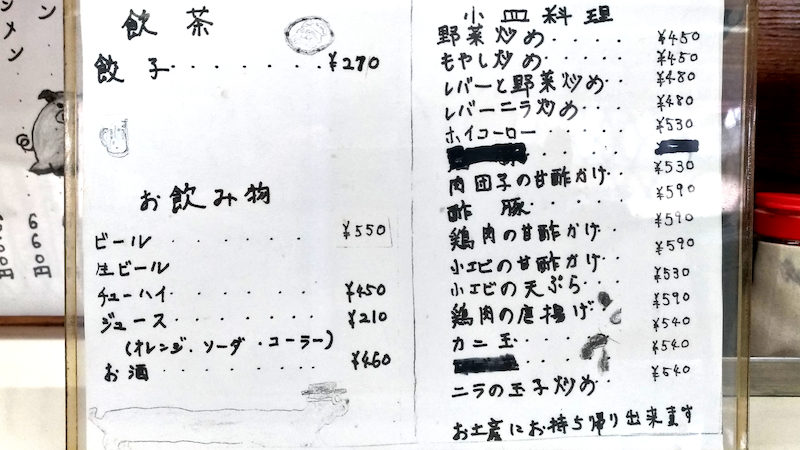 飲茶
餃子・・・・・・・¥270
お飲み物
ビール・・・・・・・¥550
生ビール
チューハイ・・・・・・¥450
ジュース・・・・・・・¥210
(オレンジ・ソーダ・コーラー)
お酒・・・・・・・・¥460
小皿料理
野菜炒め・・・・¥450
もやし炒め・・・・¥450
レバーと野菜炒め・・・¥480
レバーニラ炒め・・・¥480
ホイコーロー・・・・¥530
肉団子の甘酢かけ・・¥530
酢豚・・・・・¥590
鶏肉の甘酢かけ・・¥590
小エビの甘酢かけ・・¥590
小エビの天ぷら・・¥530
鶏肉の唐揚げ・¥590
カニ玉・・・・¥540
¥540
ニラの玉子炒め・・¥540
お土産にお持ち帰り出来ます